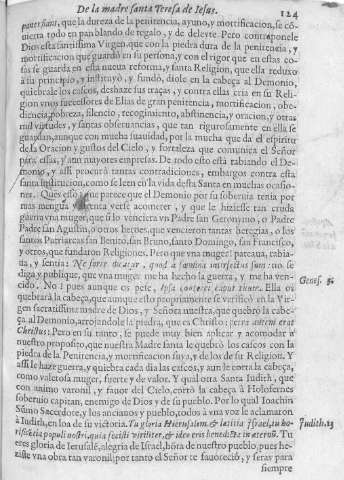 De la madre santa Teresa de Jesus. 124
que la dureza de la penitencia, ayuno, y mortificacion, se cõ-
uierta todo en pan blando de regalo, y de deleyte. Pero contraponele
Dios esta santissima Virgen, que con la piedra dura de la penitencia, y
mortificacion que guardò en su persona, y con el rigor que en estas co-
sas se guarda en esta nueua reforma, y santa Religion, que ella reduxo
a su principio, y instituyò, y fundò, diole en la cabeça al Demonio,
quiebrale los cascos, deshaze sus traças, y contra ellas cria en su Reli-
gion vnos sucessores de Elias de gran penitencia, mortificacion, obe-
diencia, pobreza, silencio, recogimiento, abstinencia, y oracion, y otras
mil virtudes, y santas obseruancias, que tan rigurosamente en ella se
guardan, aunque con mucha suauidad, por la mucha que da el espiritu
de la Oracion y gustos del Cielo, y fortaleza que comunica el Señor
para essas, y aun mayores empresas. De todo esto està rabiando el De-
monio, y assi procurà tantas contradiciones, embargos contra esta
santa institucion, como se leen en la vida desta Santa en muchas ocasio-
nes. Que esso que parece que el Demonio por su soberuia tenia por
mas mengua verse acometer, y que le hiziesse tan cruda
guerra vna muger, que si lo venciera vn Padre san Geronymo, o Padre
Padre san Agustin, o otros heroes, que vencieron tantas heregias, o los
santos Patriarcas san Benito, san Bruno, santo Domingo, san Francisco,
y otros, que fundaron Religiones. Pero que vna muger! pateaua, rabia-
ua, y sentia: Ne forte dicatur, quod a fœmina interfectus sum: no se
diga, y publique, que vna muger me ha hecho la guerra, y me ha ven-
cido. No? pues aunque os pese, Ipsa conteret caput tuum. Ella os Genes. 3.
quebrarà la cabeça, que aunque esto propriamente se verificò en la Vir-
gen sacratissima madre de Dios, y Señora nuestra, que quebrò la cabe-
ça al Demonio, arrojandole la piedra, que es Christo: petra autem erat
Christus: Pero en su tanto, se puede muy bien aplicar y acomodar à
nuestro proposito, que nuestra Madre santa le quebrò los cascos con la
piedra de la Penitencia, y mortificacion suya, y de los de su Religion. Y
assi le haze guerra, y quiebra cada dia las cascos, y aun le corta la cabeça,
como valerosa muger, fuerte y de valor. Y qual otra Santa Iudith, que
con animo varonil, y fauor del Cielo, cortò la cabeça à Holofernes
soberuio capitan, enemigo de Dios y de su pueblo. Por lo qual Ioachin
Sũmo Sacerdote, y los ancianos y pueblo, todos à vna voz le aclamaron
à Iudith, en loa de su vitoria. Tu gloria Hierusalem, & lætitia Israel, tu ho- Judith. 15
norificentia populi nostri, quia fecisti viriliter, & ideo eris benedicta in æternũ. Tu
eres gloria de Ierusalẽ, alegria de Israel, hõra de nuestro pueblo, pues he-
ziste vna obra tan varonil, por tanto el Señor te fauoreciò, y seras para
siempre